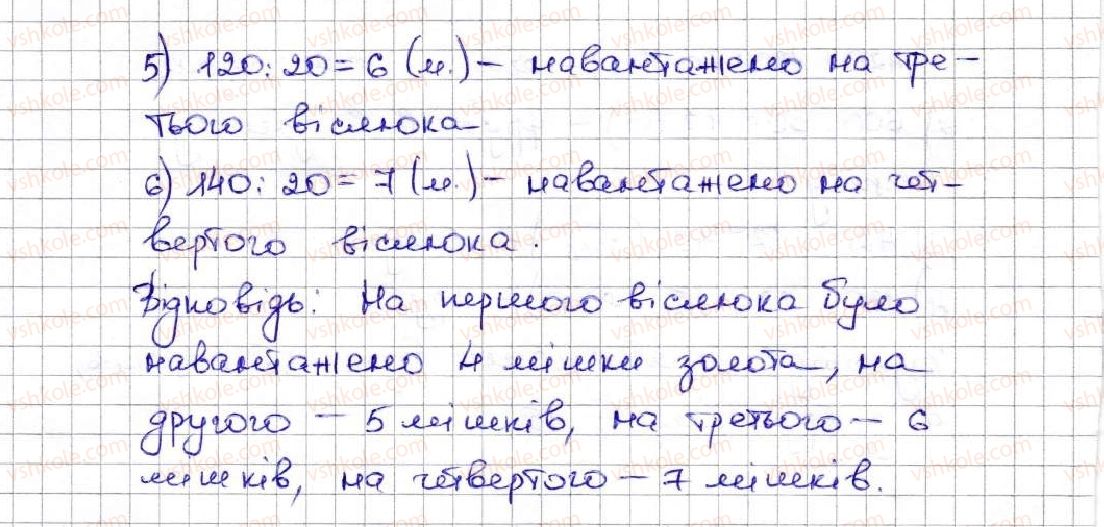 5) 120 : 20 = 6 (м.) – навантажено на тре-
тього віслюка
6) 140 : 20 = 7 (м.) – навантажено на чет-
вертого віслюка.
Відповідь: На першого віслюка було
навантажено 4 мішки золота, на
другого – 5 мішків, на третього – 6
мішків, на четвертого – 7 мішків.